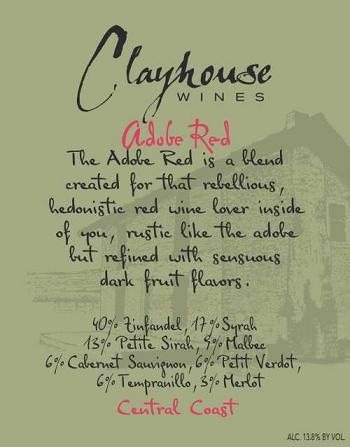 Clayhouse
WINES
Adobe Red
The Adobe Red is a blend
created for that rebellious,
hedonistic red wine lover inside
of you, rustic like the adobe
but refined with sensuous
dark fruit flavors.
40% Zinfandel, 17% Syrah
13% Petite Sirah, 9% Malbec
6% Cabernet Sauvignon, 6% Petit Verdot,
6% Tempranillo, 3% Merlot
Central Coast
ALC. 13.8% BY VOL.